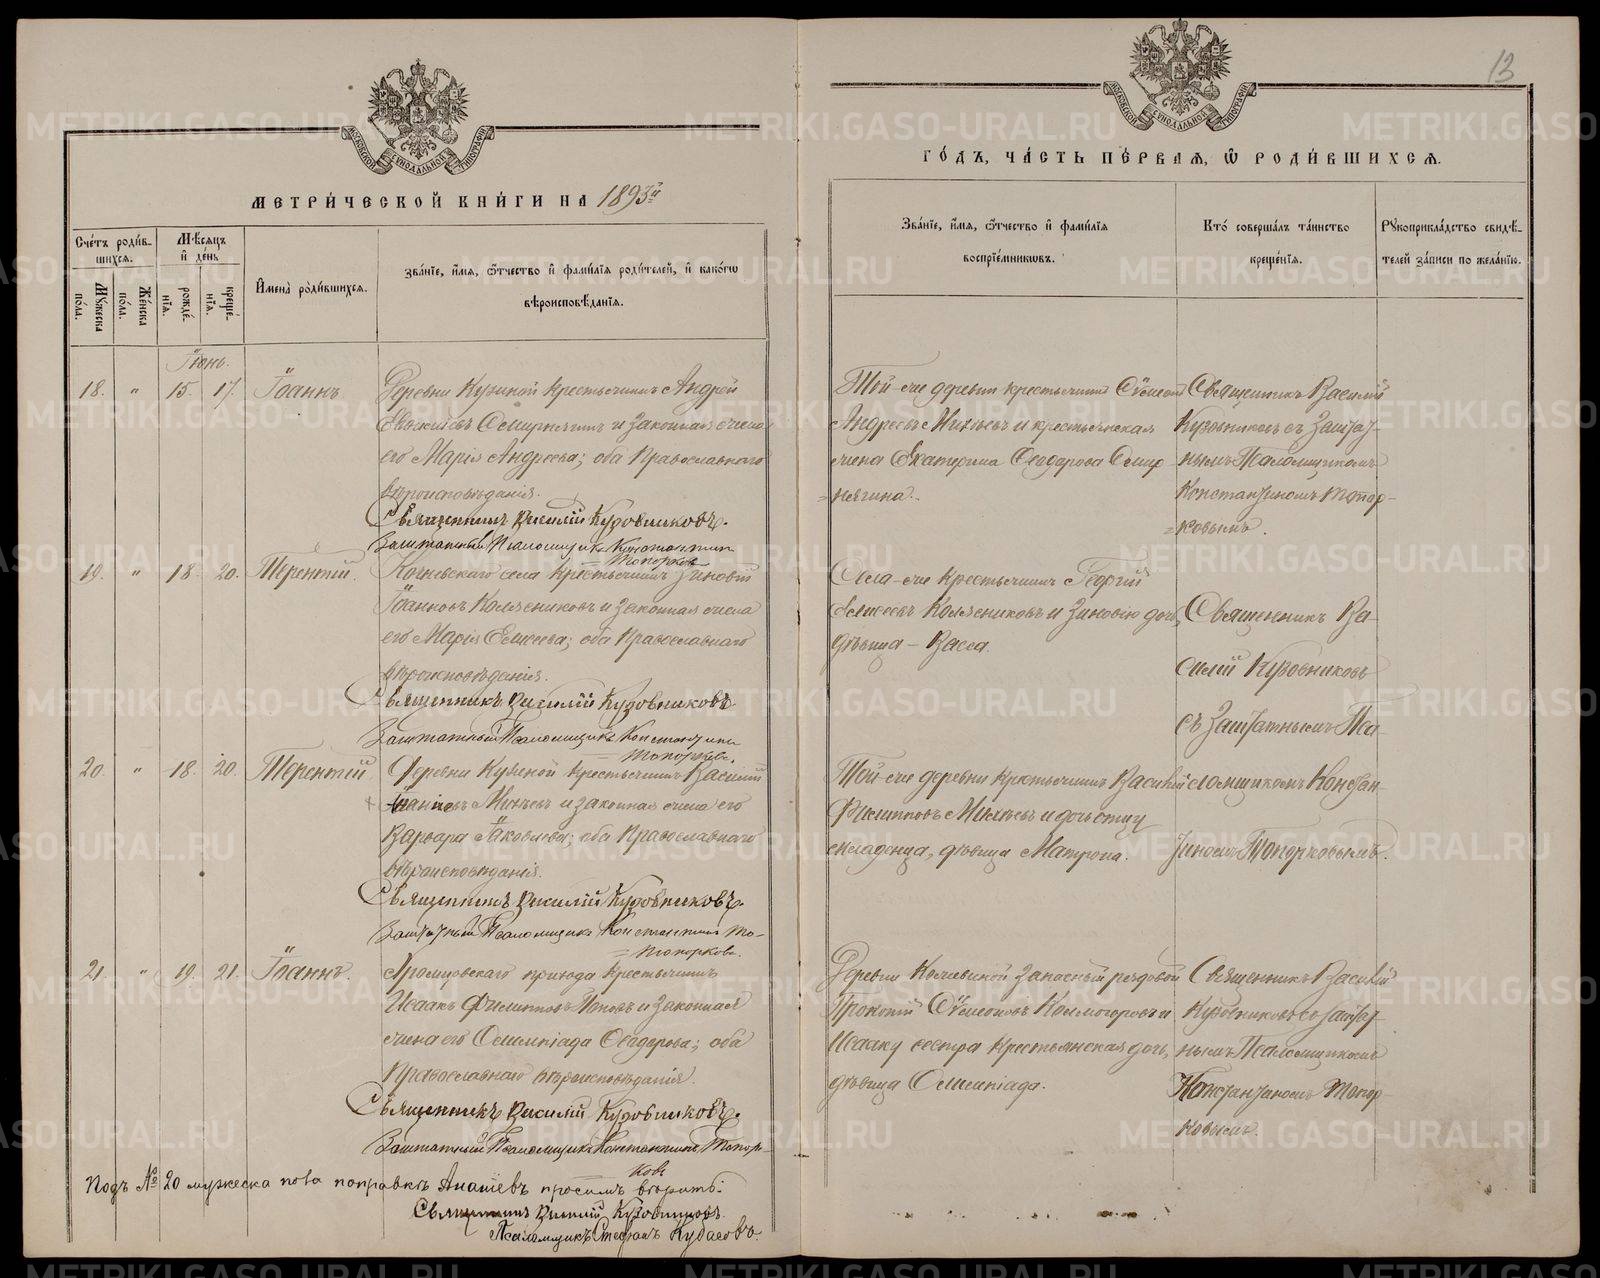 13
МЕТРИ́ЧЕСКОЙ КНИ́ГИ НА 1893й
ГО́ДЪ, ЧА́СТЬ ПЕ́РВАЯ, Ѽ РОДИ́ВШИХСЯ.
МОСКОВСКОЙ СУНОДАЛЬНОЙ ТИПОГРАФІИ
МОСКОВСКОЙ СУНОДАЛЬНОЙ ТИПОГРАФІИ
Сче́тъ роди́вшихся.
Мꙋжеска пола.
Же́нска пола.
Мѣ́сяцъ и҆ де́нь
рожде́нїѧ.
креще́нїѧ.
И҆мена̀ роди́вшихсѧ.
Зва́нїе, и҆́мѧ, ѻ҆́тчество и҆ фами́лїѧ роди́телей, и҆ како́гѡ
вѣроисповѣ́данїѧ.
Зва́нїе, и҆́мѧ, ѻ҆́тчество и҆ фами́лїѧ
воспрїе́мникѡвъ.
Кто̀ соверша́лъ та́инство
креще́нїѧ.
Рꙋкоприкла́дство свидѣ́-
телей за́писи по жела́нїю.
Іюнь.
18. " 15. 17. Іоаннъ
Деревни Кузиной крестьянинъ Андрей
Смирнягинъ и законная жена
его Марія Андреева; оба Православнаго
вѣроисповѣданія.
Священникъ Василій Кузовниковъ.
Заштатный Псаломщикъ Константинъ
Топорковъ
Той-же деревни крестьянинъ Сѵмеонъ
Андреевъ Михѣевъ и крестьянская
жена Екатерина Ѳеодорова Смир
=нягина.
Священникъ Василій
Кузовниковъ съ Заштат-
нымъ Псаломщикомъ
Константиномъ Топор-
=ковымъ.
19. " 18. 20. Терентій.
села крестьянинъ Зиновій
Іоанновъ Колясниковъ и законная жена
его Марія Елисеева; оба Православнаго
вѣроисповѣданія.
Священникъ Василій Кузовниковъ.
Заштатный Псаломщикъ Константинъ
Топорковъ.
Села-же крестьянинъ Георгій
Елисеевъ Колясниковъ и Зиновію дочь,
дѣвица - Васса.
Священникъ Ва-
силій Кузовниковъ
съ Заштатнымъ Пса-
20. " 18. 20. Терентій
Деревни Кузиной крестьянинъ Василій
Ананіевъ Михѣевъ и законная жена его
Варвара Іаковлева; оба Православнаго
вѣроисповѣданія.
Священникъ Василій Кузовниковъ.
Заштатный Псаломщикъ Константинъ То-
=порковъ.
Той-же деревни крестьянинъ Василій
Филипповъ Михѣевъ и дочь отцу
младенца, дѣвица Матрона.
ломщикомъ Констан-
тиномъ Топорковымъ.
21. " 19. 21. Іоаннъ.
прихода крестьянинъ
Исаакъ Филипповъ Поповъ и законная
жена его Олимпіада Ѳеодорова; оба
Православнаго вѣроисповѣданія.
Священникъ Василій Кузовниковъ.
Заштатный Псаломщикъ Константинъ Топор-
ковъ
Деревни запасный рядовой
Прокопій Сѵмеоновъ Колмогоровъ и
Исааку сестра крестьянская дочь,
дѣвица Олимпіада.
Священникъ Василій
Кузовниковъ съ Заштат-
нымъ Псаломщикомъ
Константиномъ Топор-
ковымъ.
Подъ № 20 мужеска пола поправкѣ Ананіевъ просимъ вѣрить:
Священникъ Василій Кузовниковъ.
Псаломщикъ Стефанъ